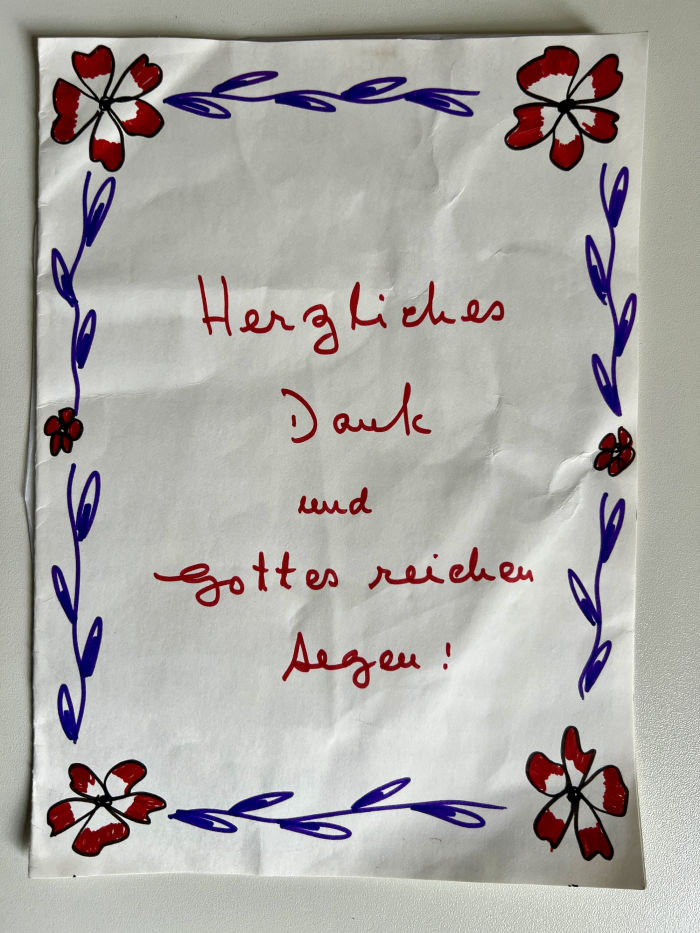 Herzliches
Dank
und
Gottes reichen
Segen!